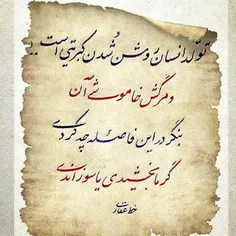 تولد انسان روشن شدن کبریتی است
و مرگش خاموشی آن
بنگر در این فاصله چه کردی
گرما بخشیدی یا سوزاندی
خط غفاری